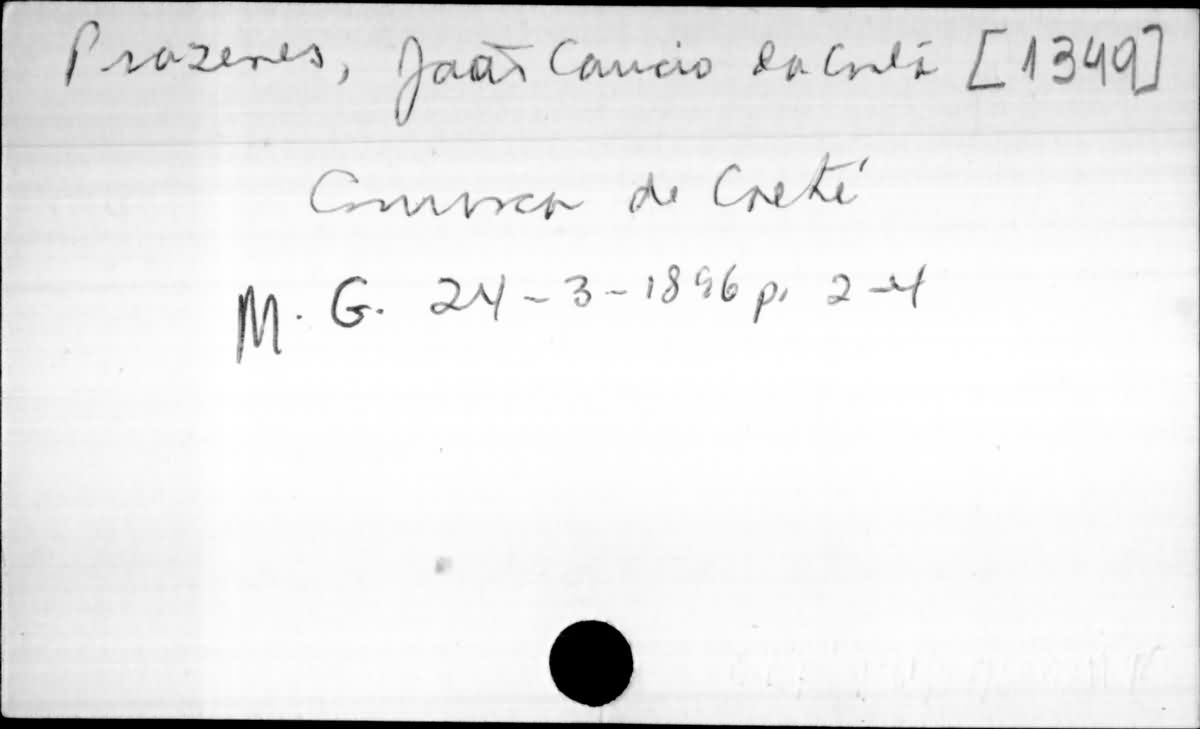 Prazeres, João Cancio da Costa [1349]
Comarca de Caeté
M. G. 24-3-1896 p. 2-4